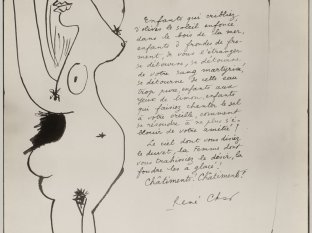 Enfants qui cribliez
d'olives le soleil enfoncé
dans le bois de la mer,
enfants ô frondes de fro-
ment, de vous l'étranger
se détourne, se détourne
de votre sang martyrisé,
se détourne de cette eau
trop pure, enfants aux
yeux de limon, enfants
qui faisiez chanter le sel
à votre oreille, comment
se résoudre à ne plus s'é-
blouir de votre amitié !
Le ciel dont vous disiez
le duvet, la Femme dont
vous trahissiez le désir, la
foudre les a glacé !
Châtiments ! Châtiments !
René Char